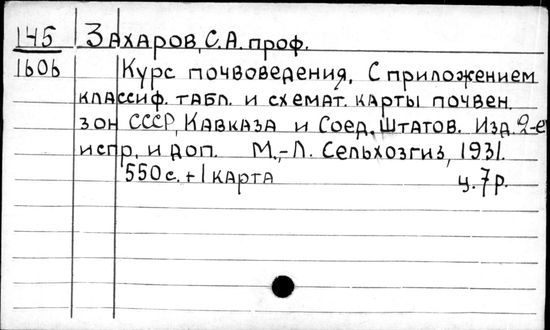 145 Захаров, С.А. проф.
1606 Курс почвоведения. С приложением
классиф. табл. и схемат. карты почвен.
зон СССР, Кавказа и Соед. Штатов. Изд. 2-е
испр. и доп. М.,-Л. Сельхозгиз, 1931.
550 с. + 1 карта ц. 7 р.